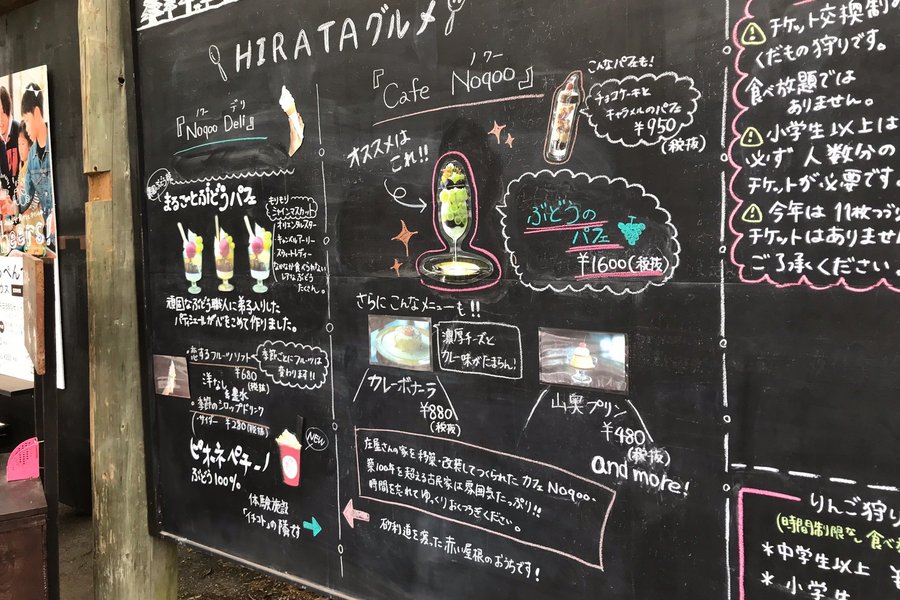 HIRATAグルメ
ノワー デリ
『Noqoo Deli』
まるごとぶどうパフェ
もりもり
シャインマスカット
オリエンタルスター
キャンベルアーリー
スウィートレディー
なかなか食べられない
レアなぶどう
たくさん。
頑固なぶどう職人に弟子入りした
パティシエールが心をこめて作りました。
恋するフルーツソルト
¥680
(税抜)
季節ごとにフルーツは
変わります!!
洋なし&豊水
季節のシロップドリンク
サイダー ¥280(税抜)
ピオーネペチーノ
ぶどう100%
NEW
体験施設
「イチコト」の隣す
ノワー
『Cafe Noqoo』
オススメは
これ!!
こんなパフェも!
チョコケーキと
キャラメルのパフェ
¥950
(税抜)
ぶどうの
パフェ
¥1600(税抜)
さらにこんなメニューも!!
濃厚チーズと
カレー味がたまらん!
カレーボナーラ
¥880
(税抜)
山奥プリン
¥480
(税抜)
and more!
庄屋さんの家を移築・改装してつくられたカフェNoqoo。
築100年を超える古民家は雰囲気たっぷり!!
時間を忘れてゆっくりおくつろぎください。
砂利道を渡った赤い屋根のおうちです!
チケット交換制の
くだもの狩りです。
食べ放題では
ありません。
小学生以上は
必ず人数分の
チケットが必要です。
今年は11枚つづり
チケットはありません
ご了承ください。
りんご狩り
(時間制限なし食べ
*中学生以上 ¥
*小学生